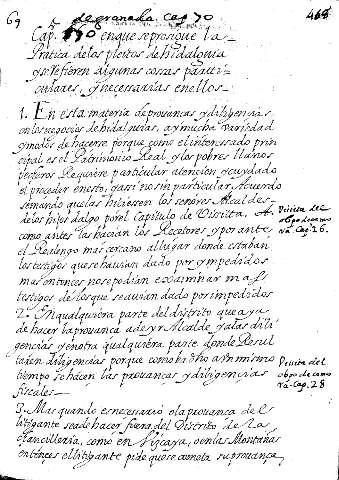 69
de granada Cap. 70
468
Cap. 70 en que se prosigue la
Pratica de los pleitos de hidalguia
y se refieren algunas cosas parti-
culares, y necessarias en ellos.
1. En esta materia de provanças y diligencias
en los negocios de hidalguias, ay mucha variedad
y modos de hacerse porque como el interessado prin
cipal es el Patrimonio Real, y los pobres llanos
pecheros Requiere particular atencion y cuydado
el proceder en esto, y assi no sin particular Acuerdo
se mando que las hiciessen los señores Alcaldes
de los hijos dalgo por el Capitulo de Vissitta, A.
como antes las hacian los Recetores y por ante
el Realengo mas cercano al lugar donde estaban
los testigos que se havian dado por ympedidos
mas entonces no se podian examinar mas
testigos de los que se avian dado por impedidos
Vissita del
obpo de camo
ra. Cap. 26.
2. En qualquiera parte del distrito que aya
de hacer la provança a de yr Alcalde, y a las dili
gencias y en otra qualquiera parte donde Resul
taren diligencias porque como ha dho a un mismo
tiempo se hacen las provanças y diligencias
fiscales.
Vissita del
obpo de camo
ra. Cap. 28
3. Mas quando es necesario q la provanca del
litigante se a de hacer fuera del Distrito de la
chancilleria, como en Vizcaya, o en las Montañas
entonces el litigante pide que se cometa su provança,